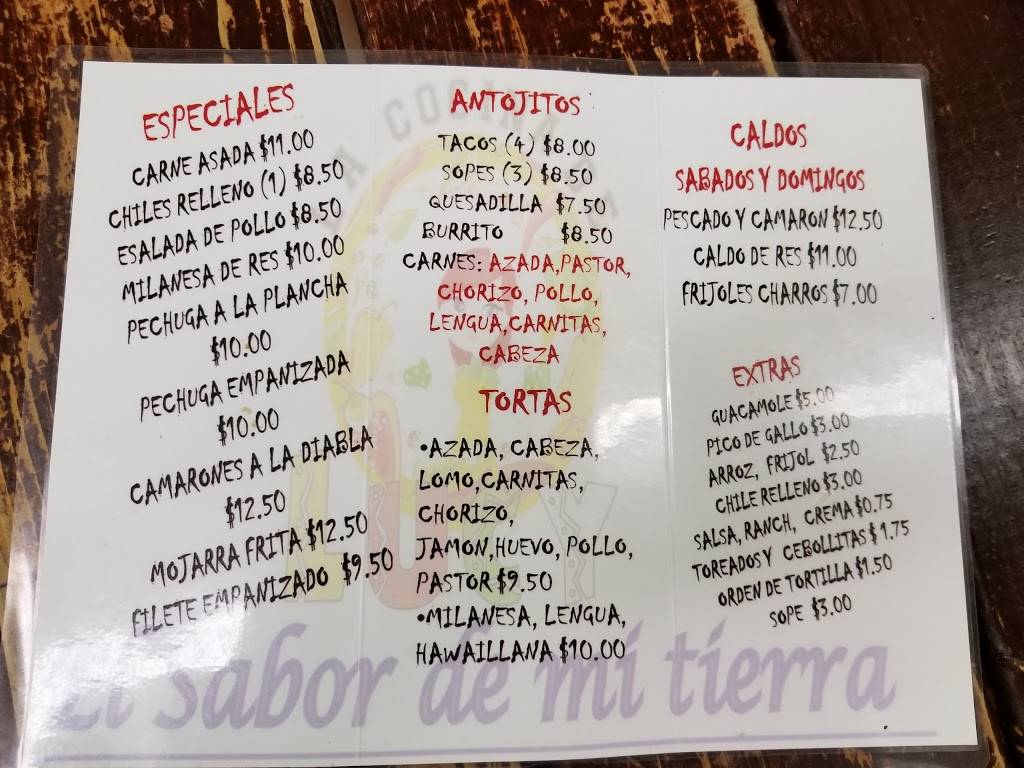 ESPECIALES
CARNE ASADA $11.00
CHILES RELLENO (1) $8.50
ESALADA DE POLLO $8.50
MILANESA DE RES $10.00
PECHUGA A LA PLANCHA
$10.00
PECHUGA EMPANIZADA
$10.00
CAMARONES A LA DIABLA
$12.50
MOJARRA FRITA $12.50
FILETE EMPANIZADO $9.50
ANTOJITOS
TACOS (4) $8.00
SOPES (3) $8.50
QUESADILLA $7.50
BURRITO $8.50
CARNES: AZADA,PASTOR,
CHORIZO, POLLO,
LENGUA,CARNITAS,
CABEZA
TORTAS
•AZADA, CABEZA,
LOMO,CARNITAS,
CHORIZO,
JAMON,HUEVO, POLLO,
PASTOR $9.50
•MILANESA, LENGUA,
HAWAILLANA $10.00
CALDOS
SABADOS Y DOMINGOS
PESCADO Y CAMARON $12.50
CALDO DE RES $11.00
FRIJOLES CHARROS $7.00
EXTRAS
GUACAMOLE $5.00
PICO DE GALLO $3.00
ARROZ, FRIJOL $2.50
CHILE RELLENO $3.00
SALSA, RANCH, CREMA $0.75
TOREADOS Y CEBOLLITAS $1.75
ORDEN DE TORTILLA $1.50
SOPE $3.00
LA COCINA DE
LUCY
El sabor de mi tierra